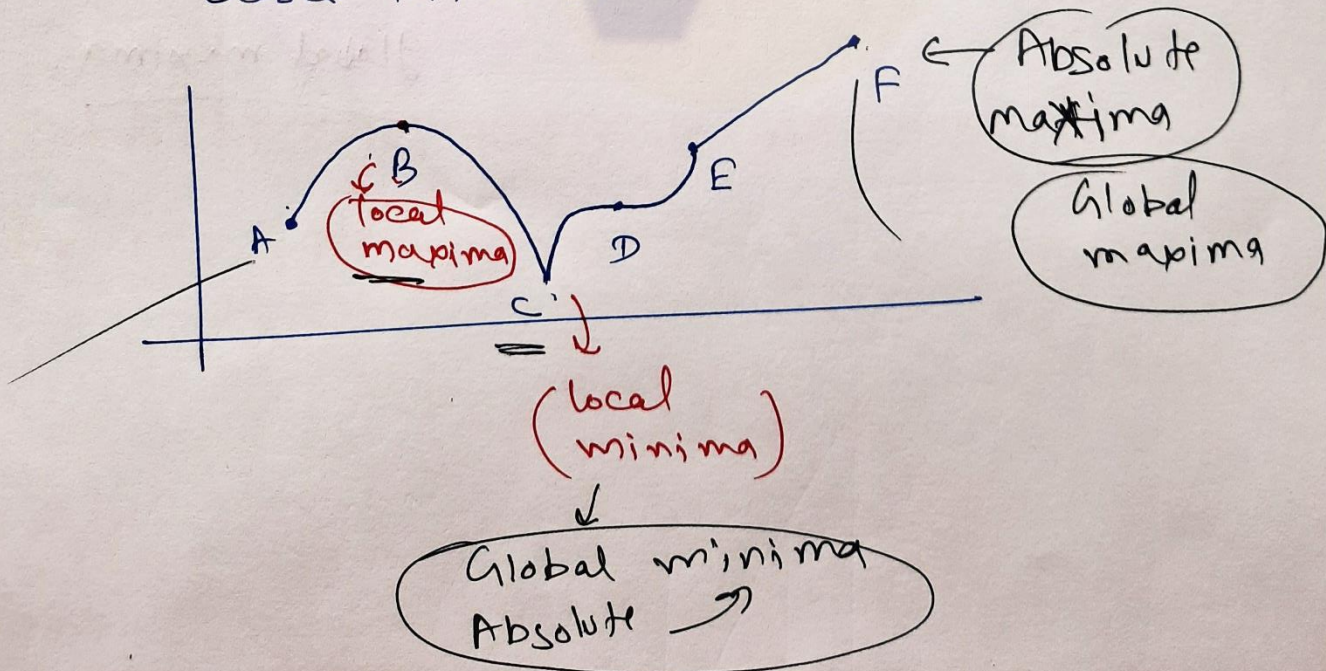 Absolute
maxima
Global
maxima
A
B
local
maxima
C
D
E
F
(local
minima)
Global minima
Absolute